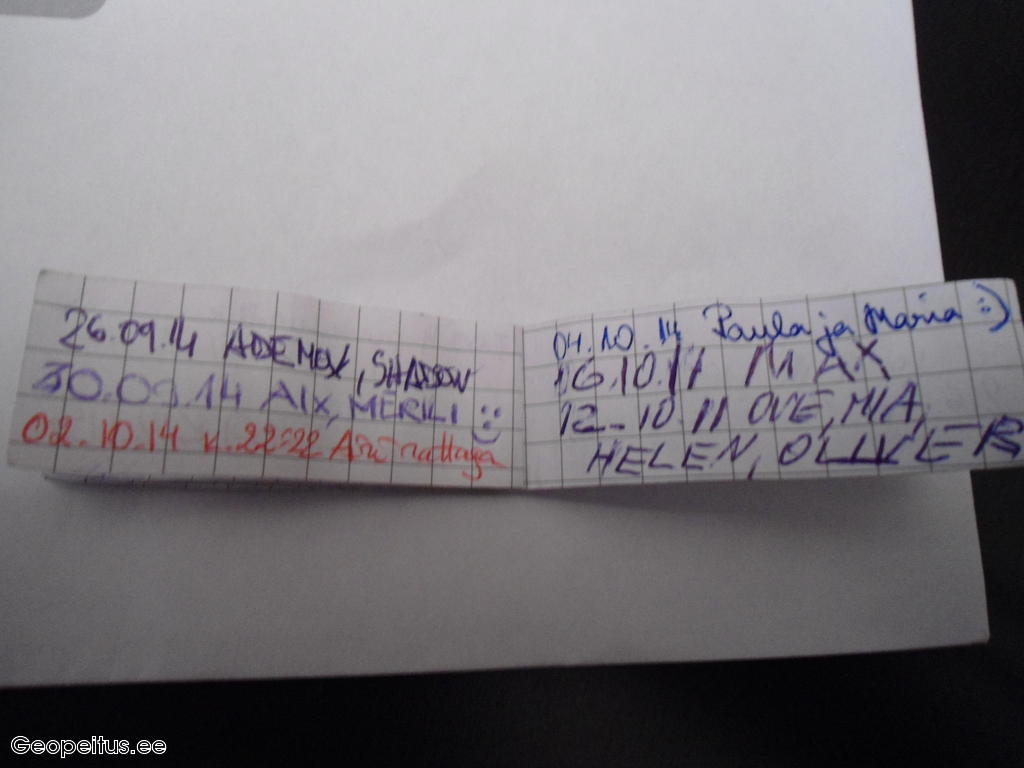 26.09.14 ADEMOX, SHADOW
30.09.14 AIX, MERILI :)
02.10.14 k.22:22 rattaga
04.10.14 Paula ja Maria :)
16.10.11 MAX
12-10.11 OVE, MIA,
HELEN, OLLVER
Geopeitus.ee